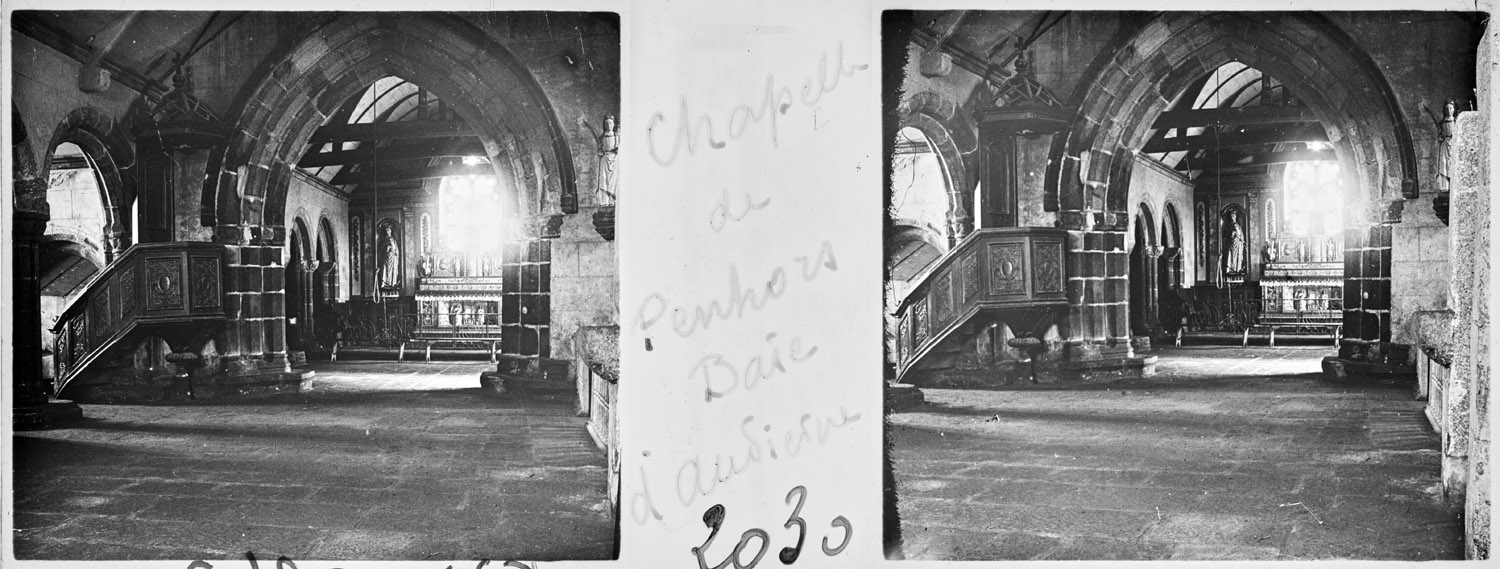 Chapelle
de
Penhors
Baie
d'audierne
2030